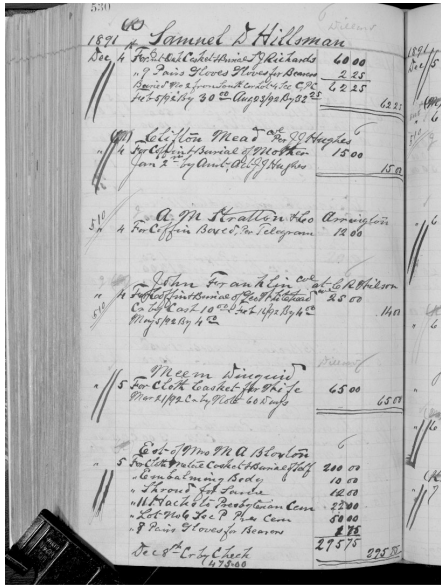 530
Willard
1891 Samuel D Hillsman
Dec 4 For Cut Oak Casket & Burial J Richards 60 00
" 9 Pairs Gloves Gloves for Bearers 2 25
Buried No 2 from South Lot 4 Sec C, P. C 62 25
Feb 5/92 By 30 00 Aug 23/92 By 32 25
62 25
Clifton Mead col Per J J Hughes
" 4 For Coffin & Burial of Mother 15 00
Jan 2nd by Amt. Act J J Hughes
15 00
510
A. M Stratton & Co Arrington
" 4 For Coffin Boxed Per Telegram 12 00
John Franklin col at C R Wilson
" 4 For Coffin & Burial of Whitehead 25 00
510
Cr by Cash 10 00 Feb 16/92 By 4 00
May 5/92 By 4 00
14 00
Willard
Meem Winquid
" 5 For Cloth Casket for Wife 65 00
Mar 21/92 Cr by Note 60 Days
65 00
Est of Mrs M A Bloxton
" 5 For Cloth State Casket & Burial of Self 200 00
" Embalming Body 10 00
" Shroud for Same 12 00
" 11 Hacks to Presbyterian Cem 22 00
" Lot No 6 Sec P Pres Cem 50 00
" 7 Pair Gloves for Bearers 1 75
295 75
Dec 8th Cr by Check
295 00